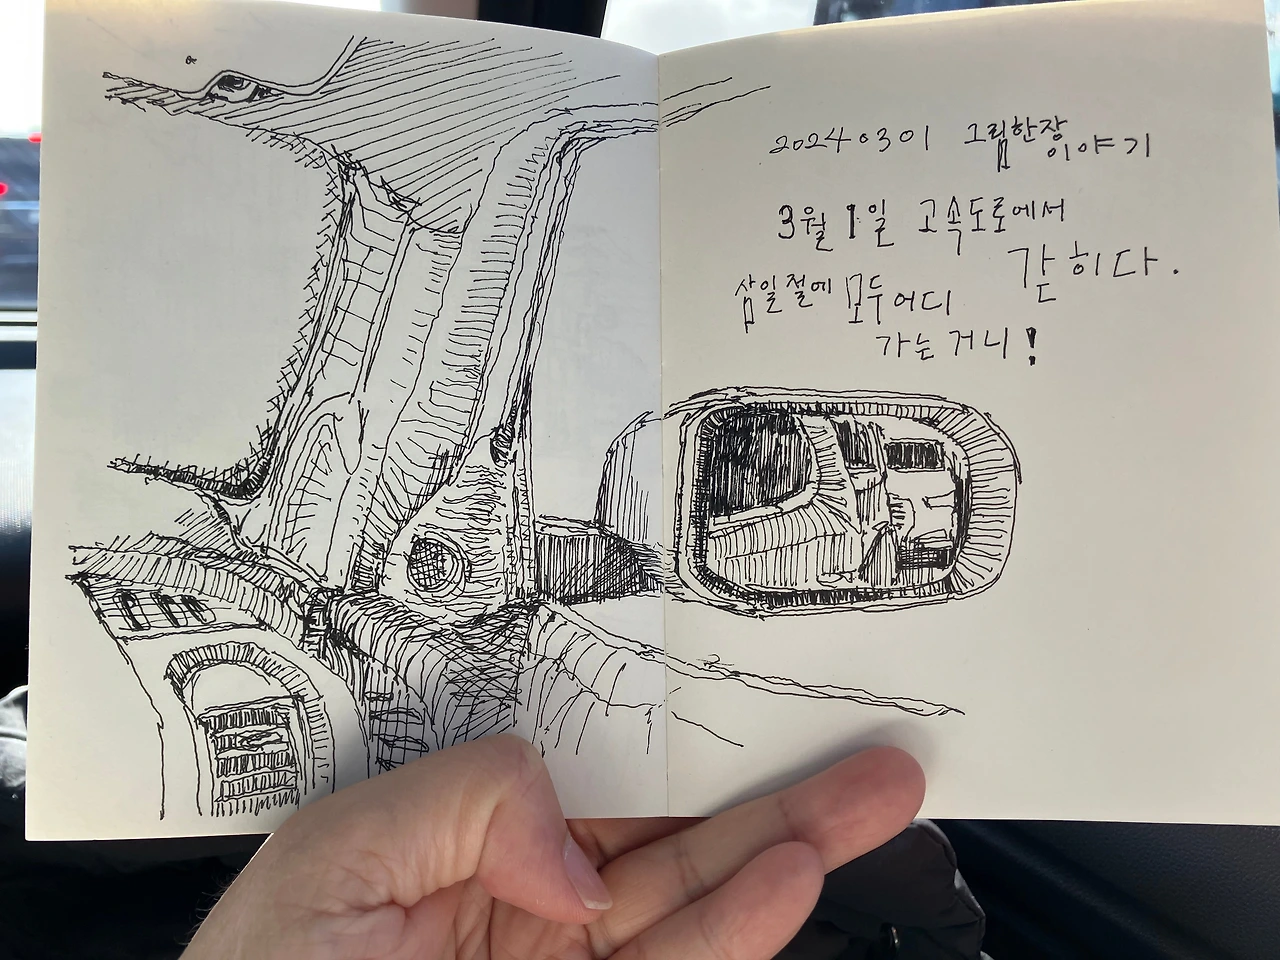 20240301 그림한장
이야기
3월 1일 고속도로에서
갇히다.
삼일절에 모두 어디
가는거니!